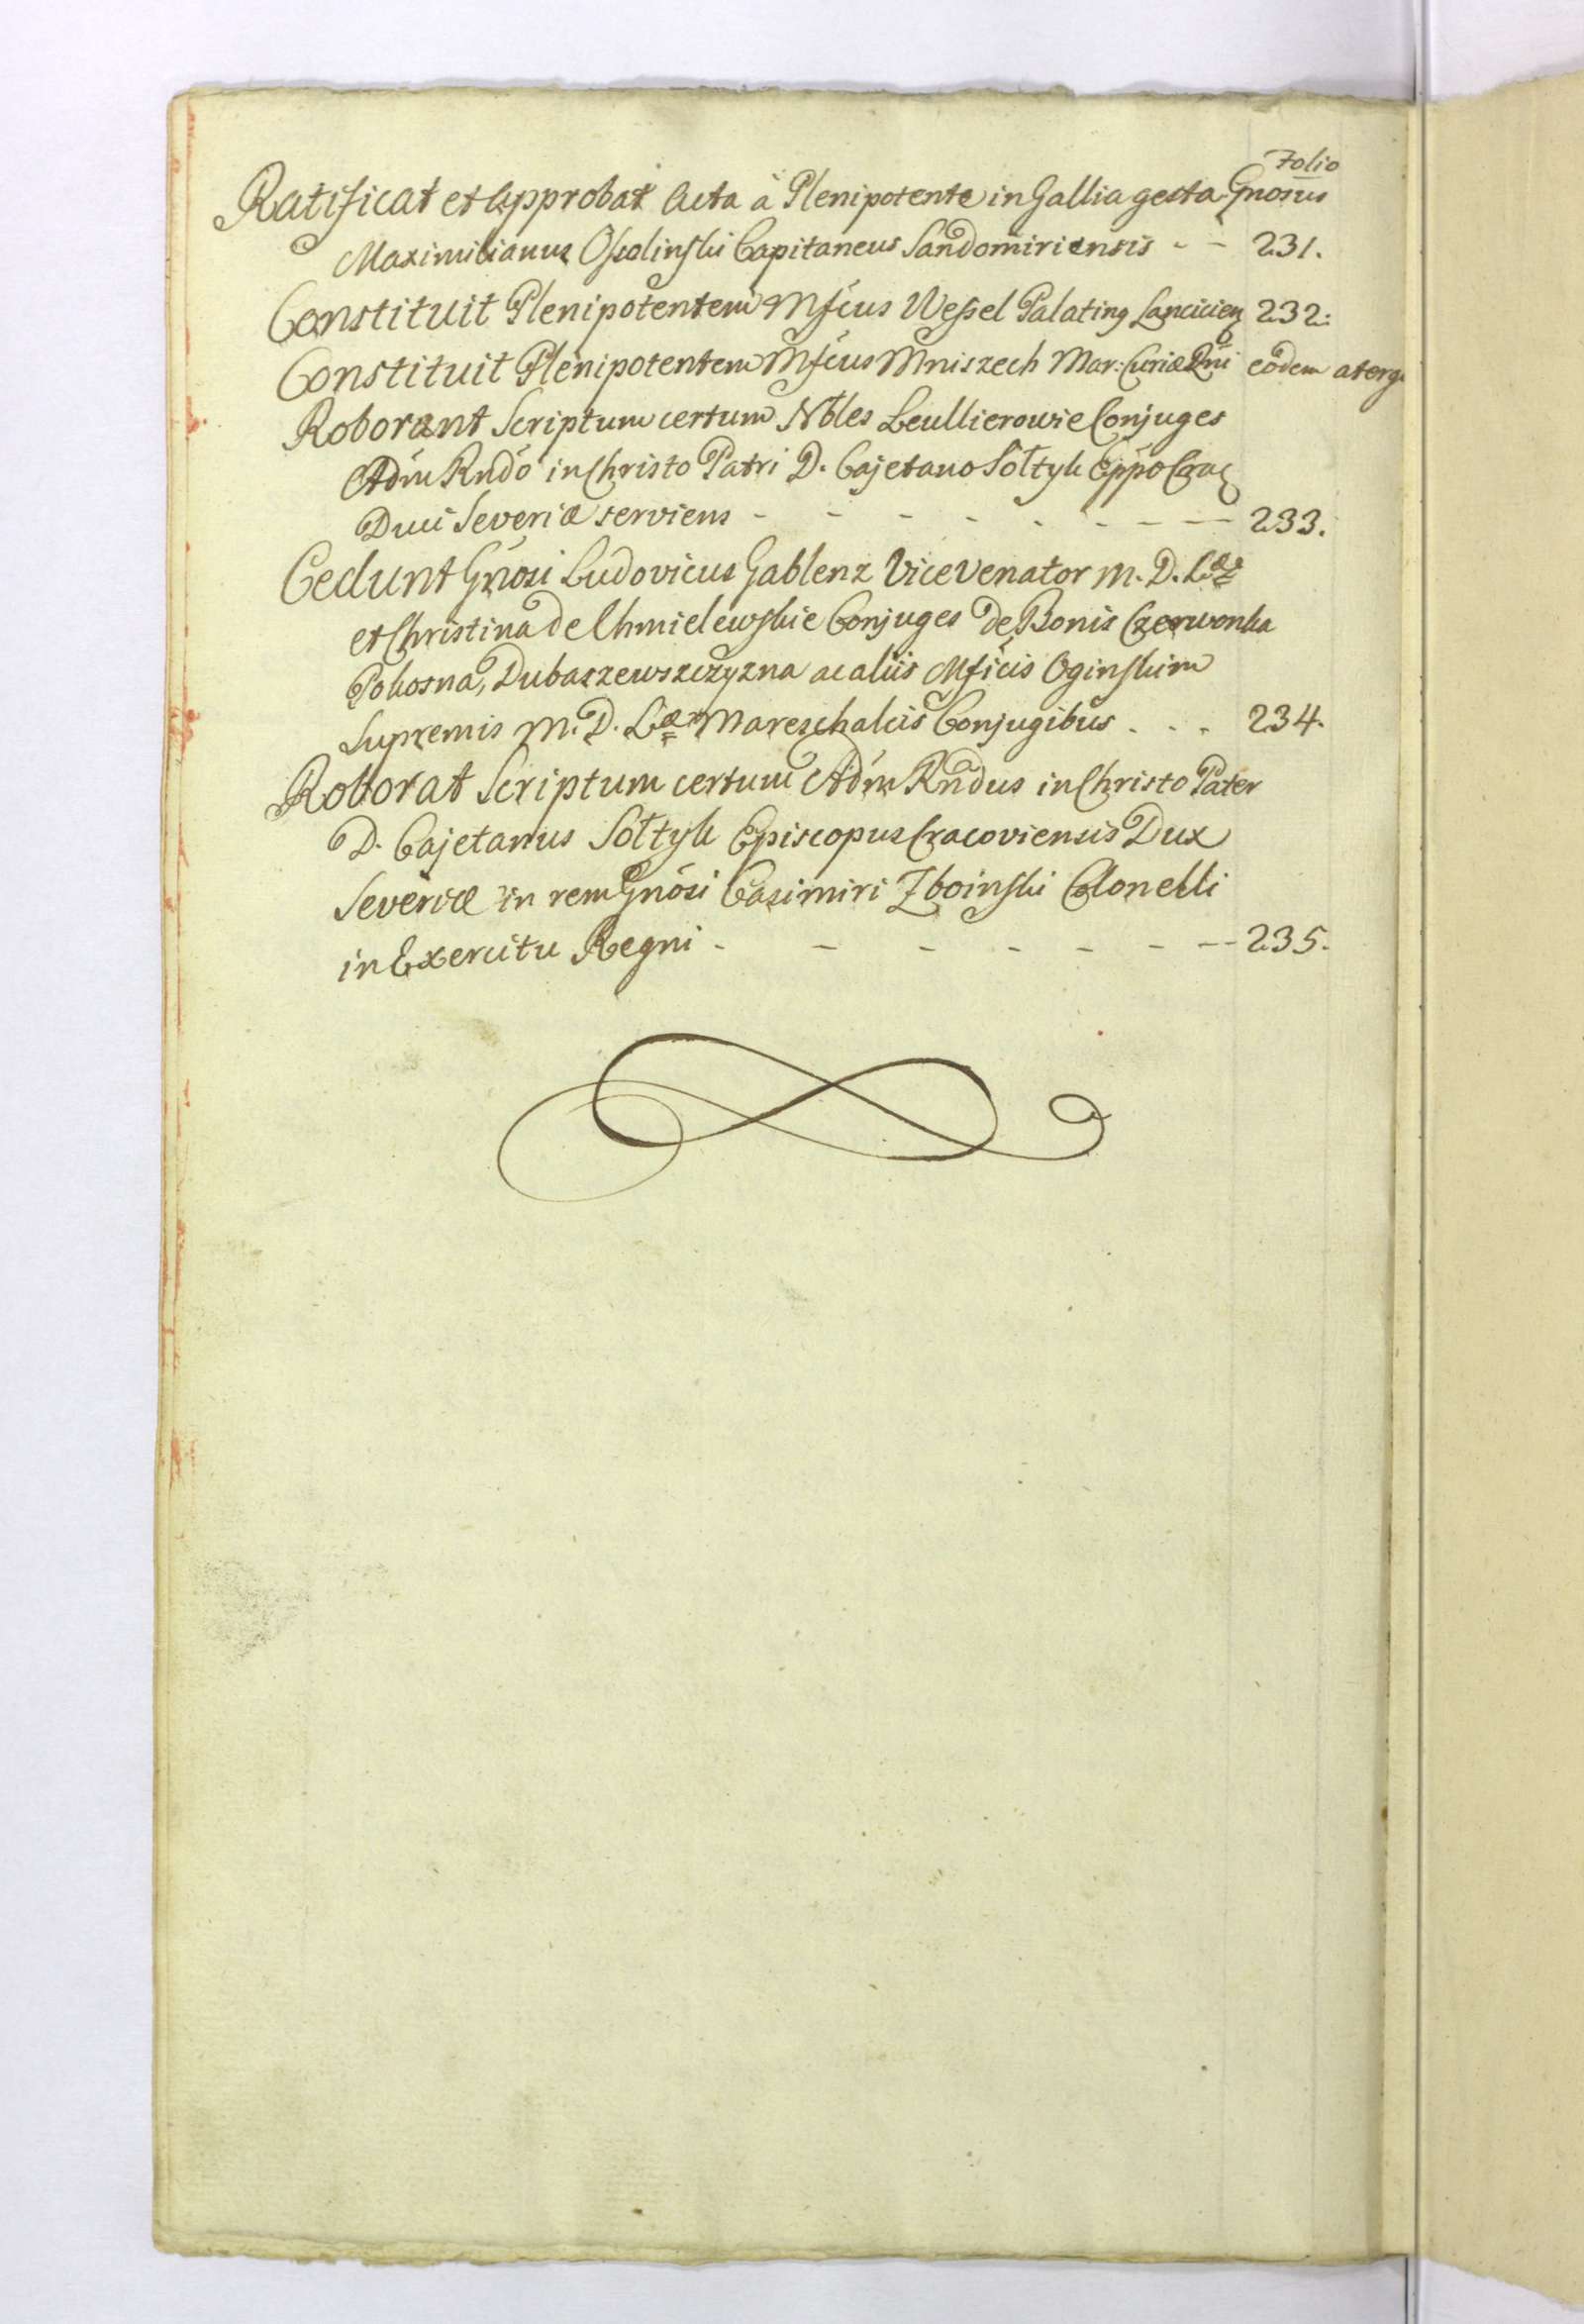 Folio
Ratificat et Approbat Acta à Plenipotente in Gallia gesta Gnosus
Maximilianus Ossolinski Capitaneus Sandomiriensis - - 231.
Constituit Plenipotentem Mfcus Wessel Palating Lancicien 232.
Constituit Plenipotentem Mfcus Mniszech Mar: Curiæ Rni eodem atergo
Roborant Scriptum certum Nbles Leullierowie Conjuges
Adm Rndo in Christo Patri D. Cajetano Sołtyk Eppo Crac
Duci Severiæ serviens - - - - - - - - 233.
Cedunt Gnosi Ludovicus Gablenz Vice Venator M. D. Læ
et Christina de Chmielewskie Conjuges de Bonis Czerwonka
Pokosna, Dubaszewszczyzna ac aliis Mficis Oginskim
Supremis M. D. Læ Mareschalcis Conjugibus . . . 234.
Roborat Scriptum certum Adm Rndus in Christo Pater
D. Cajetanus Sołtyk Episcopus Cracoviensis Dux
Severiæ in rem Gnosi Casimiri Zboinski Colonelli
in Exercitu Regni - - - - - - - - 235.